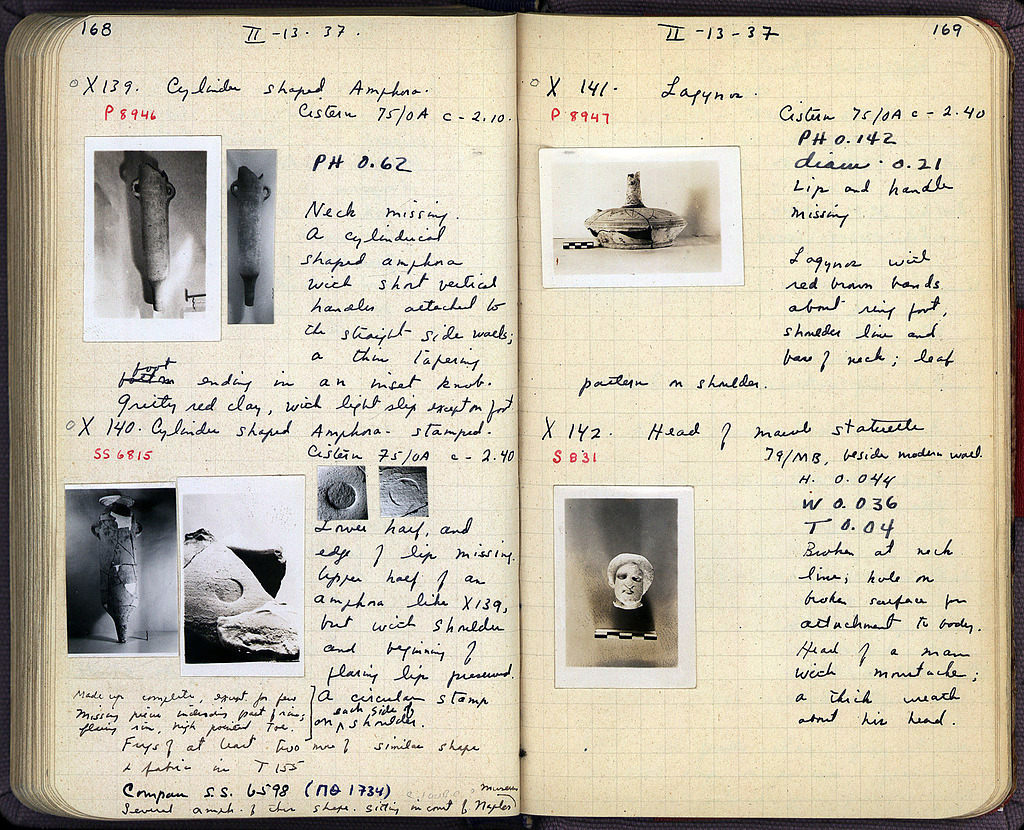 168
II - 13 · 37 ·
X 139. Cylinder shaped Amphora.
P 8946
Cistern 75/OA c - 2.10.
PH 0.62
Neck missing.
A cylindrical
shaped amphora
with short vertical
handles attached to
the straight side walls;
a thin tapering
foot
bottom ending in an inset knob.
Gritty red clay, with light slip except on foot
X 140. Cylinder shaped Amphora - stamped.
SS 6815
Cistern 75/OA c - 2.40
Lower half, and
edge of lip missing.
Upper half of an
amphora like X139,
but with shoulder
and beginning of
flaring lip preserved.
A circular stamp
each side of
on shoulder.
Made up complete, except for few
missing pieces including part of rim;
flaring rim, high pointed toe.
Frags of at least two more of similar shape
& fabric in T 155
Compare S.S. 6598 (ΠΘ 1734)
Museum
Several amph. of this shape sitting in court of Naples
II - 13 - 37
169
X 141. Lagynos.
P 8947
Cistern 75/OA c - 2.40
PH 0.142
diam. 0.21
Lip and handle
missing.
Lagynos with
red brown bands
about ring foot,
shoulder line and
base of neck; leaf
pattern on shoulder.
X 142. Head of marb statuette
S 831
79/MB, beside modern wall.
H. 0.044
W 0.036
T 0.04
Broken at neck
line; hole on
broken surface for
attachment to body.
Head of a man
with moustache;
a thick wreath
about his head.